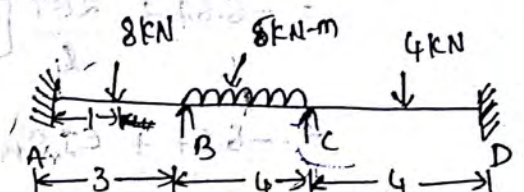 8KN 5KN-m 4KN
1
A B C D
3 4 4